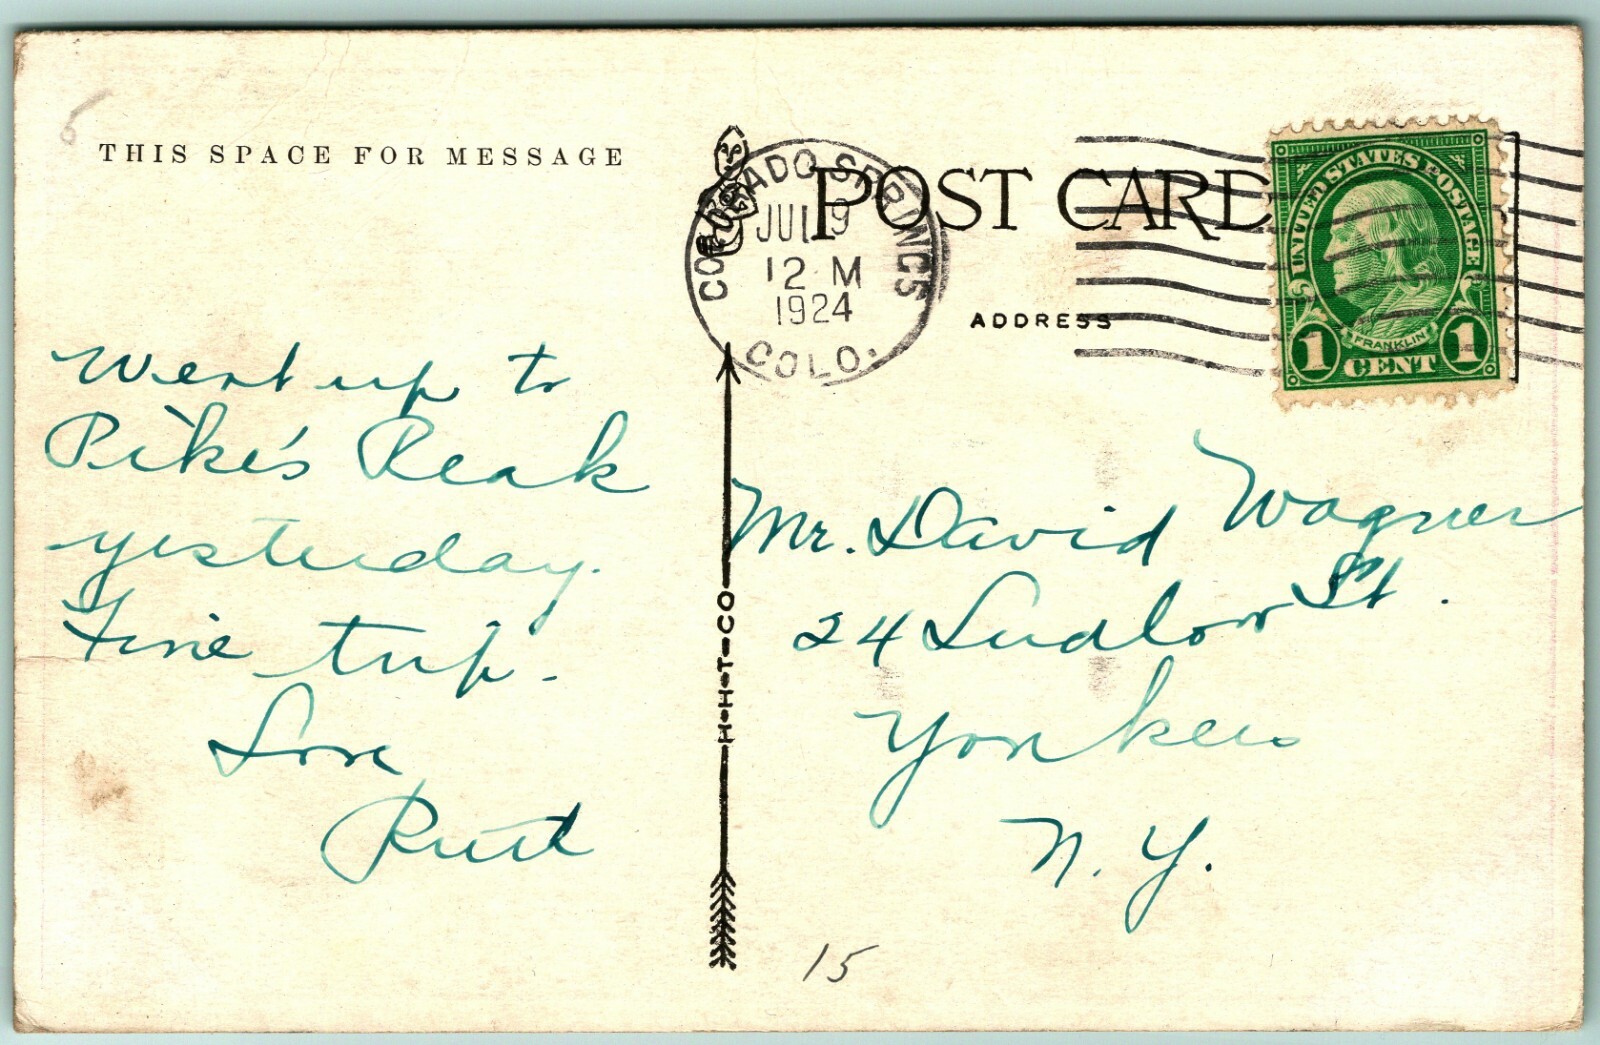 6
THIS SPACE FOR MESSAGE
Went up to
Pike's Peak
yesterday.
Fine trip.
Love
Ruth
COLORADO SPRINGS
JUL 9
12 M
1924
COLO.
H-H-T-CO
POST CARD
ADDRESS
UNITED STATES POSTAGE
FRANKLIN
1 CENT 1
Mr. David Wagner
24 Ludlow St.
Yonkers
N. Y.
15